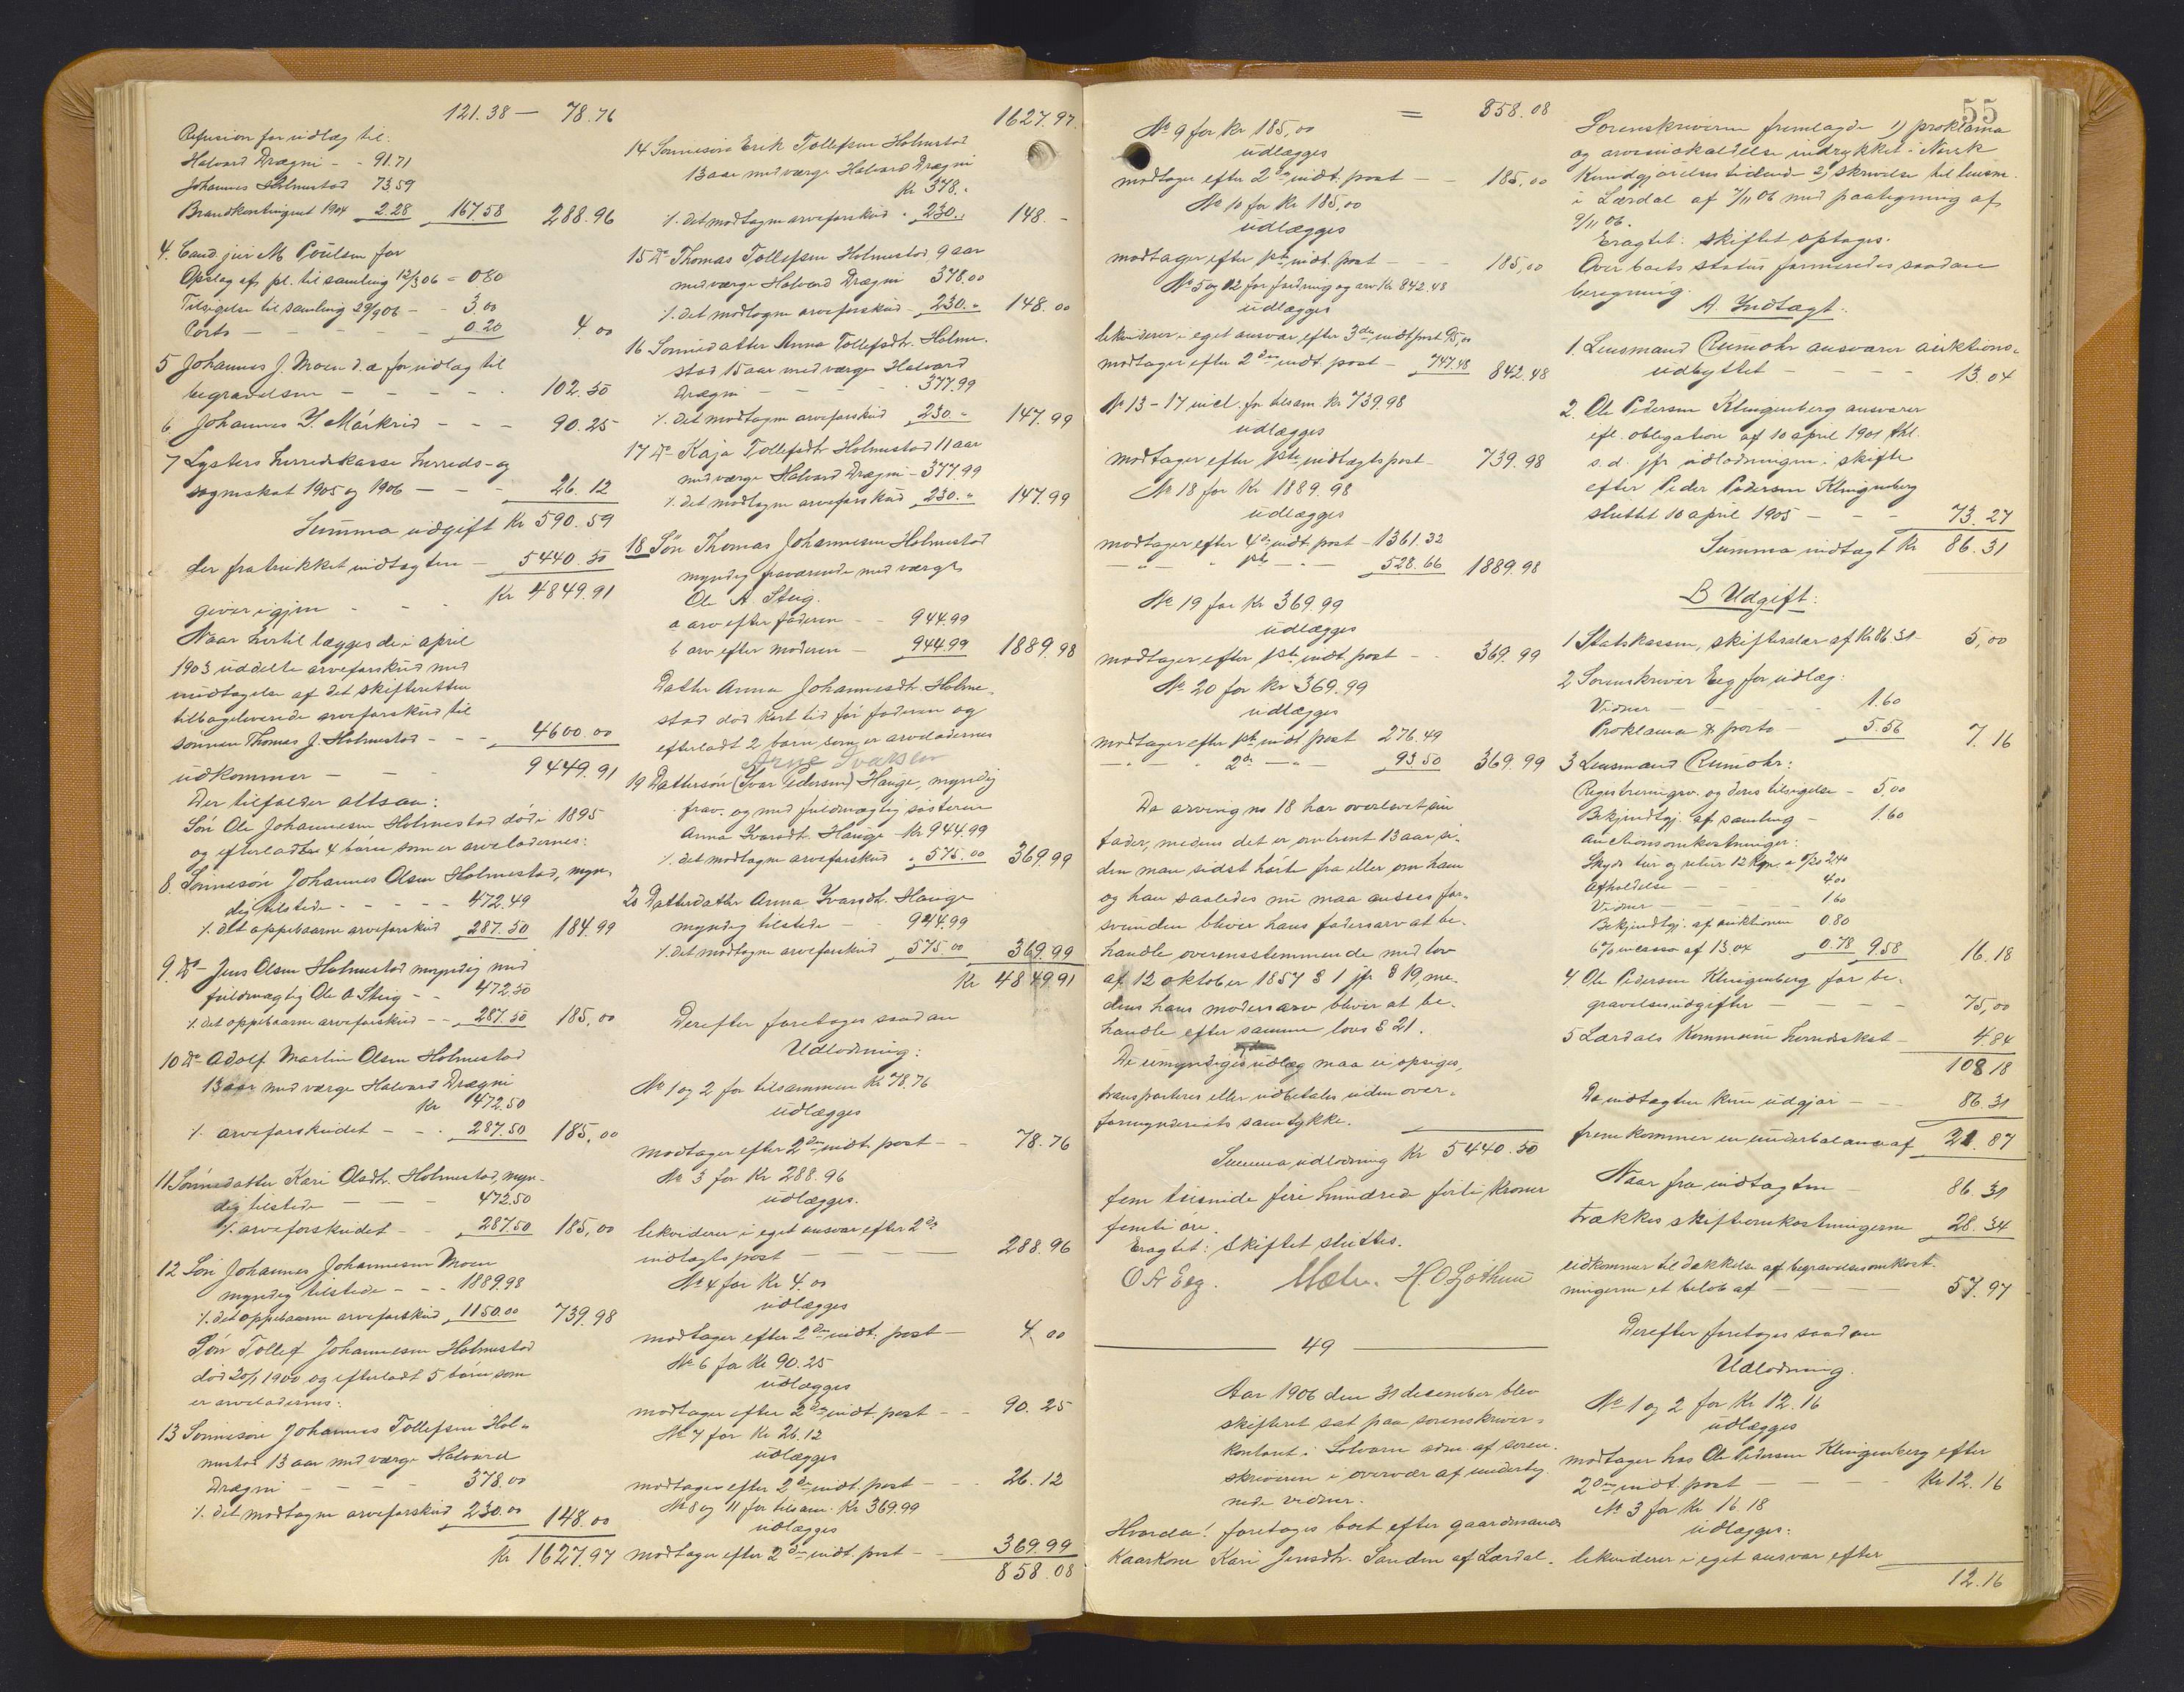 121.38 — 78.76
Refusion for udlæg til:
Halvard Drægni - - 91.71
Johannes Holmestad 73.59
Brandkontingent 1904 2.28 167.58 288.96
4. Cand. jur M Poulsen for
Opslag af pl. til samling 12/3 06 - 0.80
Tilsigelse til samling 29/9 06 - - 3.00
Porto — — — — 0.20 4.00
5 Johannes J. Moen d.æ for udlæg til
begravelsen — — — — 102.50
6 Johannes Y. Mørkrid - - - 90.25
7 Lysters herredskasse herreds- og
sogneskat 1905 og 1906 — - - 26.12
Summa udgift Kr 590.59
der fratrukket indtægten — 5440.50
giver igjen - - - Kr 4849.91
Naar hertil lægges de i april
1903 uddelte arveforskud med
undtagelse af det skifteretten
tilbageleverede arveforskud til
sønnen Thomas J. Holmestad - - - 4600.00
udkommer — — — 9449.91
Der tilfalder altsaa:
Søn Ole Johannesen Holmestad død i 1895
og efterladte 4 børn som er arveladernes:
8. Sønnesøn Johannes Olsen Holmestad, myn-
dig tilstede - - - - - 472.49
÷ det oppebaarne arveforskud 287.50 184.99
9. Do - Jens Olsen Holmestad myndig med
fuldmægtig Ole A Steig - - 472.50
÷ det oppebaarne arveforskud - - 287.50 185,00
10 Do - Adolf Martin Olsen Holmestad
13 aar med værge Halvard Drægni
Kr 472.50
÷ arveforskudet - - . 287.50 185,00
11 Sønnedatter Kari Olsdtr. Holmestad, myn-
dig tilstede — — - 472.50
÷ arveforskudet - - 287.50 185,00
12 Søn Johannes Johannesen Moen
myndig tilstede - - - 1889.98
÷ det oppebaarne arveforskud 1150.00 739.98
Søn Tollef Johannesen Holmestad
død 20/1 1900 og efterladt 5 børn som
er arveladernes:
13 Sønnesøn Johannes Tollefsen Hol-
mestad 13 aar med værge Halvard
Drægni - - - - 378.00
÷ det modtagne arveforskud 230.00 148.00
Kr 1627.97
1627.97.
14 Sønnesøn Erik Tollefsen Holmestad
13 aar med værge Halvard Drægni
Kr 378.-
÷ det modtagne arveforskud - 230.- 148. -
15 Do - Thomas Tollefsen Holmestad 9 aar
med værge Halvard Drægni 378.00
÷ det modtagne arveforskud - 230.- 148.00
16 Sønnedatter Anna Tollefsdtr. Holme-
stad 15 aar med værge Halvard
Drægni — — - 377.99
÷ det modtagne arveforskud 230.- 147.99
17 Do - Kaja Tollefsdtr Holmestad 11 aar
med værge Halvard Drægni - 377.99
÷ det modtagne arveforskud 230.- 147.99
18 Søn Thomas Johannesen Holmestad
myndig fraværende med værge
Ole A. Steig.
a arv efter faderen - - 944.99
b arv efter moderen — 944.99 1889.98
Datter Anna Johannesdtr. Holme-
stad død kort tid før faderen og
efterladt 2 børn som er arveladernes
Arne Ivarsen
19 Dattersøn (Ivar Pedersen) Hauge, myndig
frav. og med fuldmægtig søsteren
Anna Ivarsdtr. Hauge - Kr 944.99
÷ det modtagne arveforskud - 575.00 369.99
20 Datterdatter Anna Ivarsdtr. Hauge
myndig tilstede - 944.99
÷ det modtagne arveforskud 575.00 369.99
Kr 4849.91
Derefter foretoges saadan
Udlodning:
No 1 og 2 for tilsammen Kr 78.76
udlægges
modtager efter 2den indt. post - - 78.76
No 3 for Kr 288.96
udlægges.
likviderer i eget ansvar efter 2de
indtægts post — — — 288.96
No 4 for Kr 4.00
udlægges
modtager efter 2den indt. post — 4.00
No 6 for Kr 90.25
udlægges
modtager efter 2den indt. post - - 90.25
No 7 for Kr 26.12
udlægges
modtager efter 2den indt. post - - 26.12
No 8 og 11 for tilsam. Kr 369.99
udlægges
modtager efter 2den indt. post - - 369.99
858.08
= 858.08
No 9 for Kr 185,00
udlægges
modtager efter 2den indt. post — - 185,00
No 10 for Kr 185,00
udlægges
modtager efter 1ste indt. post - - - 185,00
No 5 og 12 for fordring og arv Kr 842.48
udlægges
likviderer i eget ansvar efter 3die indt post 95,00
modtager efter 2den indt. post - 747.48 842.48
No 13 - 17 incl. for tilsam Kr 739.98
udlægges
modtager efter 1ste indtægtspost - 739.98
No 18 for Kr 1889.98
udlægges
modtager efter 4de indt. post - 1361.32
— " — " 1ste — " — 528.66 1889.98
No 19 for Kr 369.99
udlægges
modtager efter 1ste indt. post - - 369.99
No 20 for Kr 369.99
udlægges
modtager efter 1ste indt post 276.49
— " — " 2de — " — 93.50 369.99
Da arving no 18 har overlevet sin
fader, medens det er omtrent 13 aar si-
den man sidst hørte fra eller om ham
og han saaledes nu maa ansees for-
svunden bliver hans fædrenearv at be-
handle overensstemmende med lov
af 12 oktober 1857 § 1 jfr § 19, me-
dens hans mødrenearv bliver at be-
handle efter samme lovs § 21.
De umyndiges udlæg maa ei opsiges,
transporteres eller udbetales uden over-
formynderiets samtykke.
Summa udlodning Kr 5440.50
fem tusinde fire hundrede førti kroner
femti øre.
Eragtet: Skiftet sluttes.
O A Eeg. H. O Ljøthun
49
Aar 1906 den 31 december blev
skifteret sat paa sorenskriver-
kontoret i Solvorn adm. af soren-
skriveren i overvær af underteg-
nede vidner.
Hvorda! foretoges boet efter gaardmands
Kaarkone Kari Jensdtr. Sanden af Lærdal.
55
Sorenskriveren fremlagde 1) proklama
og arveindkaldelse indrykket i Norsk
Kundgjørelsestidende 2) skrivelse til lensm.
i Lærdal af 7/11 06 med paategning af
9/11 06.
Eragtet: Skiftet optages.
Over boets status formeredes saadan
beregning.
A. Indtægt:
1. Lensmand Rumohr ansvarer auktions-
udbyttet — — — — 13.04
2. Ole Pedersen Klingenberg ansvarer
ifl. obligation af 10 april 1901 thl.
s.d. jfr udlodningen i skifte
efter Peder Pedersen Klingenberg
sluttet 10 april 1905 — - - 73.27
Summa indtægt Kr 86.31
B Udgift:
1 Statskassen, skifteslør af Kr 86.31 - 5,00
2 Sorenskriver Eeg for udlæg:
Vidner — — — 1.60
Proklama & porto — 5.56 7.16
3 Lensmand Rumohr:
Registreringsv. og deres tilsigelse - 5,00
Bekjendtgj. af samling - 1.60
auktionsomkostninger:
Skyds tur og retur 12 Kgr. a 0/20 2.40
Afholdelse — - - 4.00
Vidner — — 1.60
Bekjendtgj. af auktionen 0.80
6% incasso af 13.04 0.78 9.58 16.18
4 Ole Pedersen Klingenberg for be-
gravelsesudgifter — — — 75,00
5 Lærdals Kommune herredsskat — 4.84
108.18
Da indtægten kun udgjør — - - 86.31
fremkommer en underbalance af 21.87
Naar fra indtægten — 86.31
trækkes skifteomkostningerne 28.34
udkommer til dækkelse af begravelsesomkost-
ningerne et beløb af — — — 57.97
Derefter foretoges saadan
Udlodning.
No 1 og 2 for Kr 12.16
udlægges
modtager hos Ole Pedersen Klingenberg efter
2den indt. post — — — Kr 12.16
No 3 for Kr 16.18
udlægges:
likviderer i eget ansvar efter
12.16